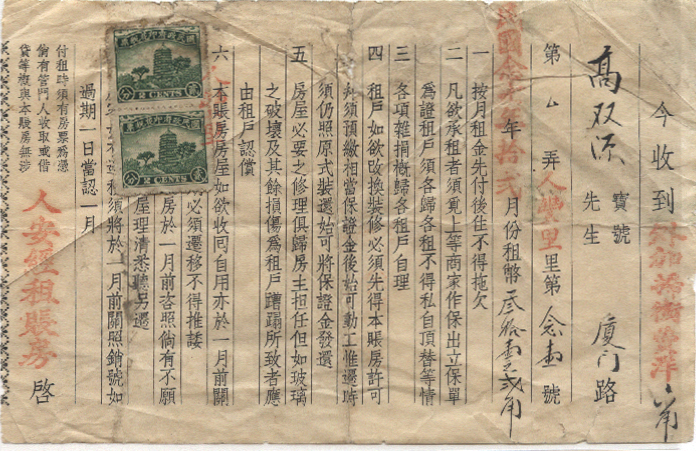 今收到
高双源 寶號 先生 廈门路
第 弄 人豐里 里第 念壹 號
民國念年拾弍月份租幣叁拾壹弍角
一 按月租金先付後住不得拖欠
二 凡欲承租者須覓上等商家作保出立保單
為證租戶須各歸各租不得私自頂替等情
三 各項雜捐概歸各租戶自理
四 租戶如欲改換裝修必須先得本賬房許可
幷須預繳相當保證金後始可動工惟遷時
須仍照原式裝還始可將保證金發還
五 房屋必要之修理俱歸房主担任但如玻璃
之破壞及其餘損傷為租戶蹧蹋所致者應
由租戶認償
六 本賬房房屋如欲收回自用亦於一月前關
必須遷移不得推諉
房於一月前咨照倘有不願
屋理清悉聽另還
須將於一月前關照銷號如
過期一日當認一月
付租時須有房票為憑
倘有管門人收取或借
貸等概與本賬房無涉
人安經租賬房 啓
分 2 CENTS 貳
分 2 CENTS 貳